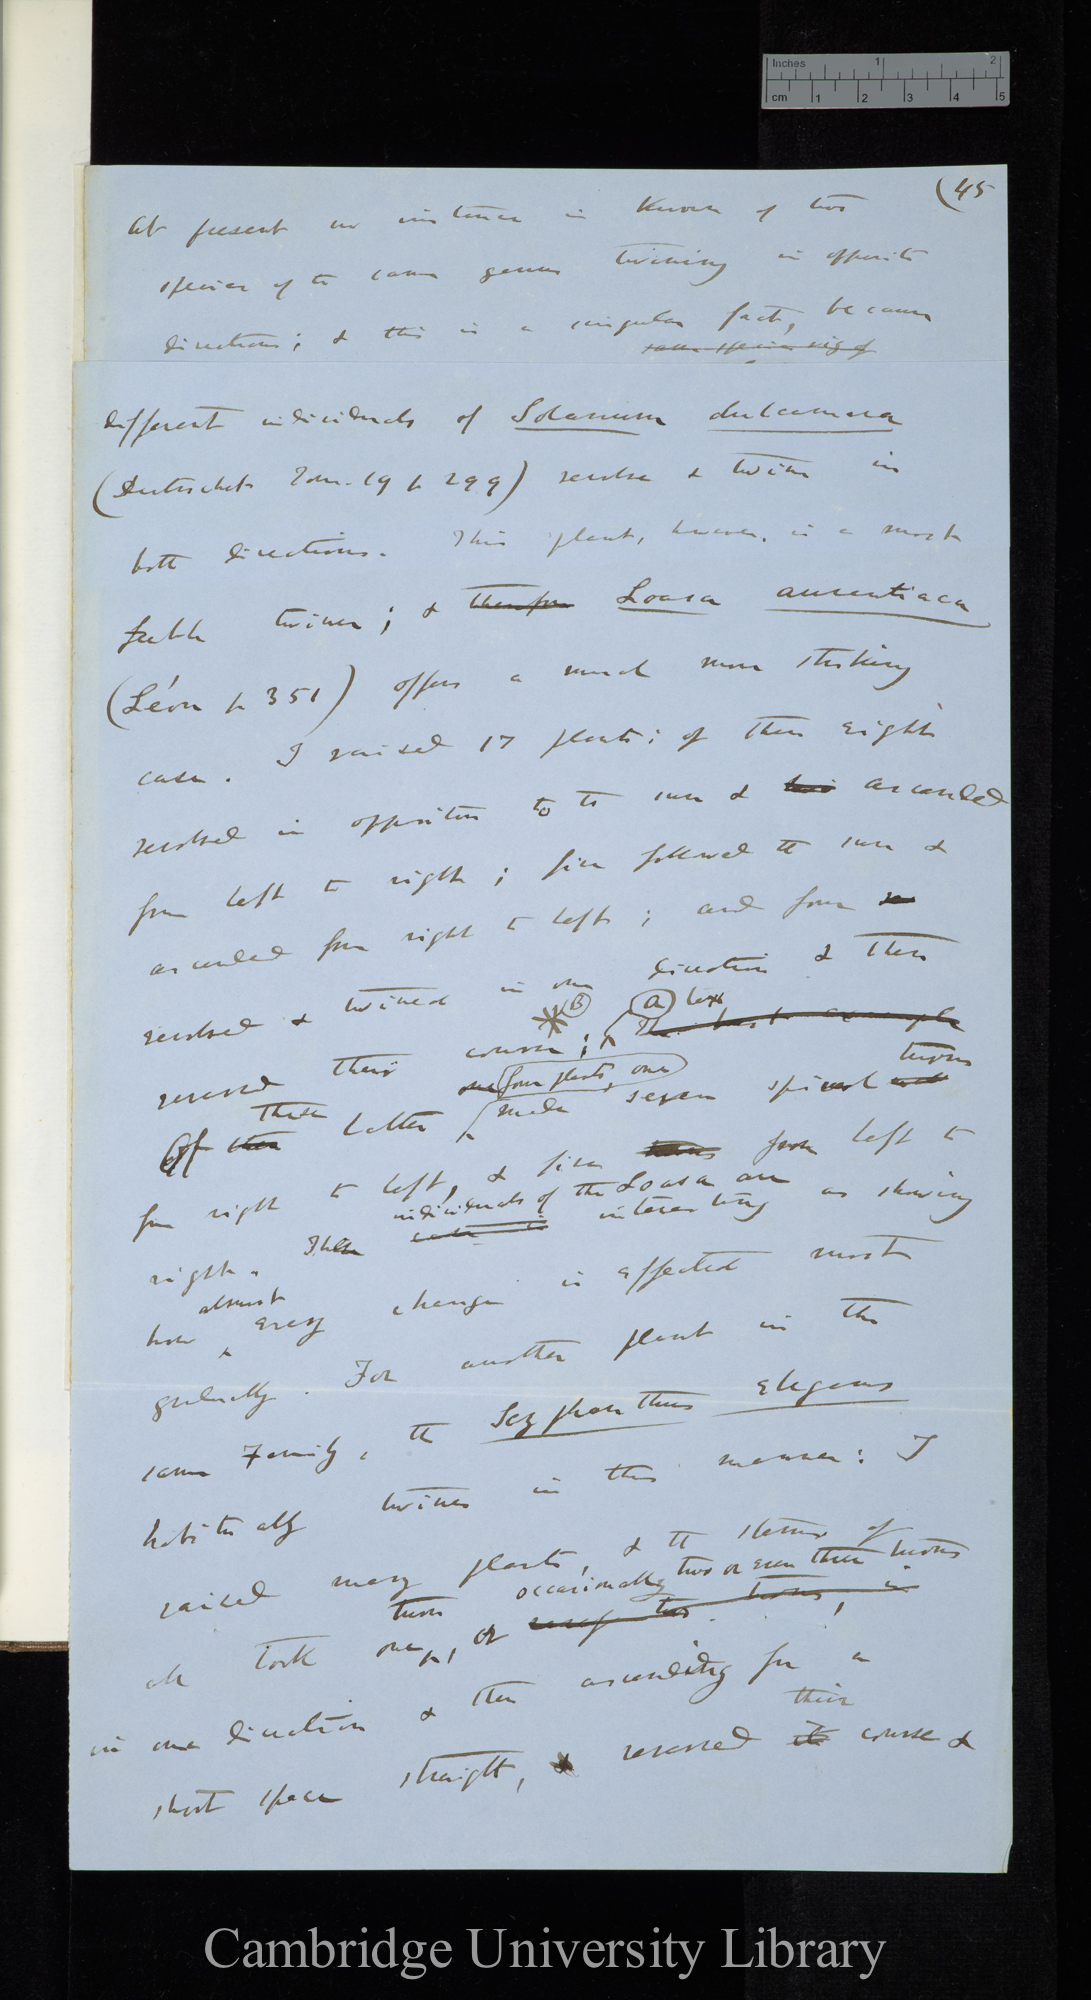 Inches 1 2
cm 1 2 3 4 5
(45
At present no instance is known of two
species of the same genus twining in opposite
directions; & this is a singular fact, because
same species
different individuals of Solanum dulcamara
(Dutrochet Tom. 19 p 299) revolve & twine in
both directions. This plant, however, is a most
feeble twiner; & therefore Loasa aurantiaca
(Léon p 351) offers a much more striking
case. I raised 17 plants; of these eight
revolved in opposition to the sun & ascended
from left to right; five followed the sun &
ascended from right to left; and four
revolved & twined in one direction & then
B a
reversed their course; The best example
one four plants, one turns
Of these latter made seven spiral
for right to left, & five turns from left to
individuals of the Loasa are
right. These case is interesting as showing
almost
how every change is effected most
gradually. For another plant in the
same Family, the Scyphanthus elegans
habitually twines in this manner: I
raised many plants, & the stems of
turn occasionally two or even three turns
all took one, or two turns, in
in one direction & then ascending for a
their
short space straight, & reversed its course &
Cambridge University Library